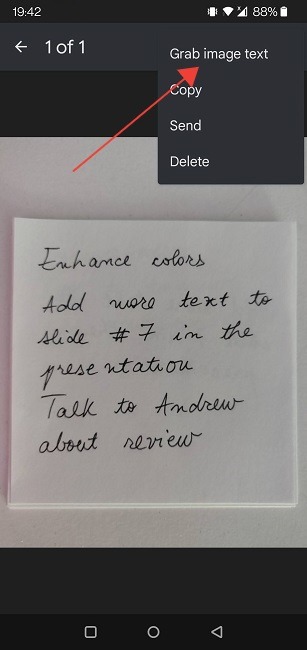 19:42 88%
1 of 1
Grab image text
Copy
Send
Delete
Enhance colors
Add more text to
slide # 7 in the
presentation
Talk to Andrew
about review